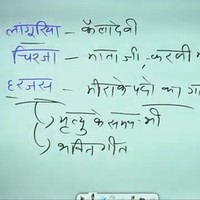 लांगुरिया – कैलादेवी
चिरजा – माताजी, करणी म
हरजस – मीरा के पदो का गा
मृत्यु के समय भी
भक्ति गीत